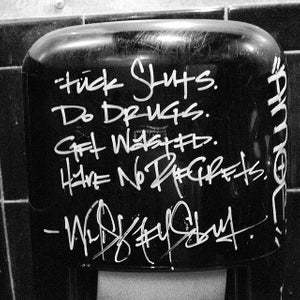 FUCK SLUTS.
DO DRUGS.
GET WASTED.
HAVE NO REGRETS.